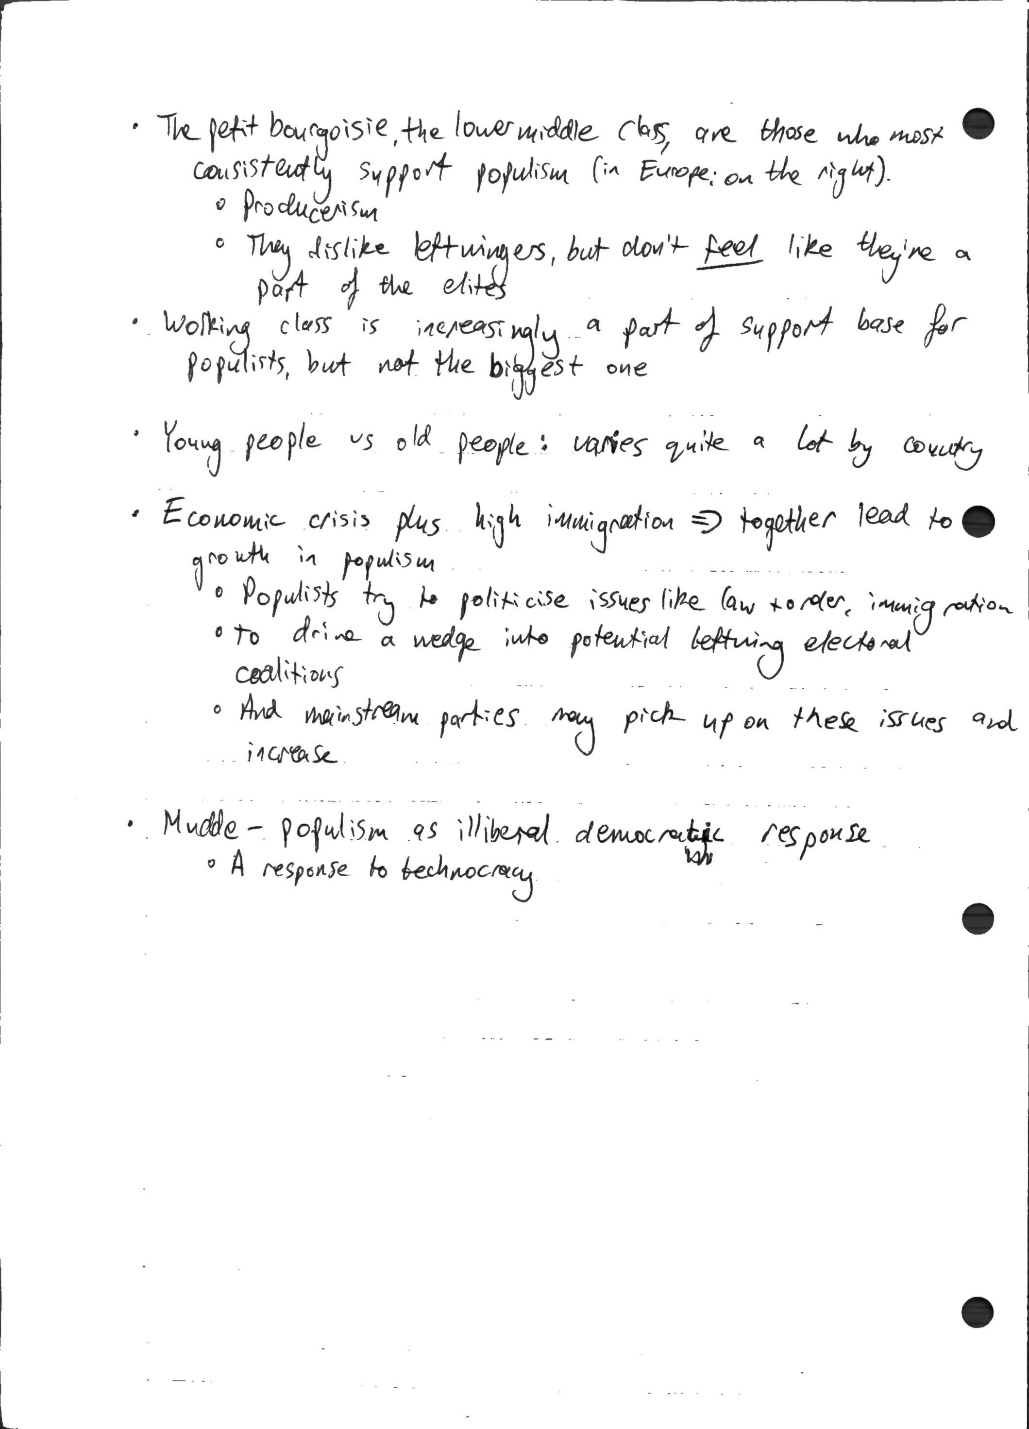 · The petit bourgoisie, the lower middle class, are those who most
consistently support populism (in Europe: on the right).
o Producerism
o They dislike leftwingers, but don't feel like they're a
part of the elites
· Working class is increasingly a part of support base for
populists, but not the biggest one
· Young people vs old people: varies quite a lot by country
· Economic crisis plus high immigration => together lead to
growth in populism
o Populists try to politicise issues like law + order, immigration
o to drive a wedge into potential leftwing electoral
coalitions
o And mainstream parties may pick up on these issues and
increase
· Mudde - populism as illiberal democratic response
o A response to technocracy